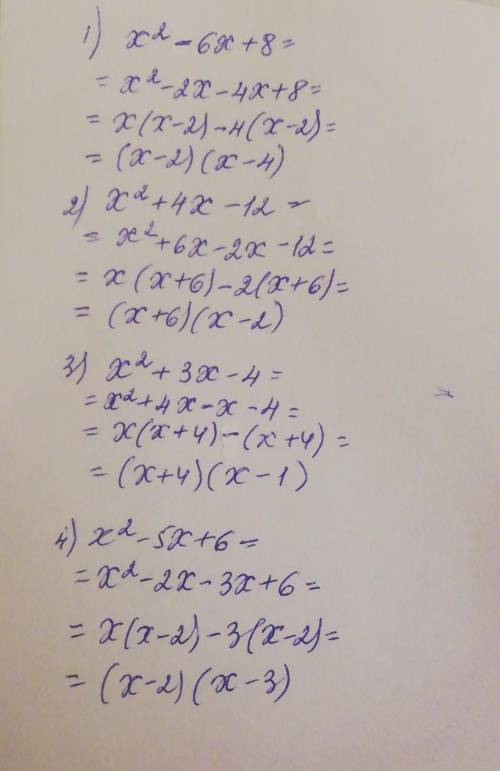 1) x² - 6x + 8 =
= x² - 2x - 4x + 8 =
= x(x-2) - 4(x-2) =
= (x-2)(x-4)
2) x² + 4x - 12 =
= x² + 6x - 2x - 12 =
= x(x+6) - 2(x+6) =
= (x+6)(x-2)
3) x² + 3x - 4 =
= x² + 4x - x - 4 =
= x(x+4) - (x+4) =
= (x+4)(x-1)
4) x² - 5x + 6 =
= x² - 2x - 3x + 6 =
= x(x-2) - 3(x-2) =
= (x-2)(x-3)